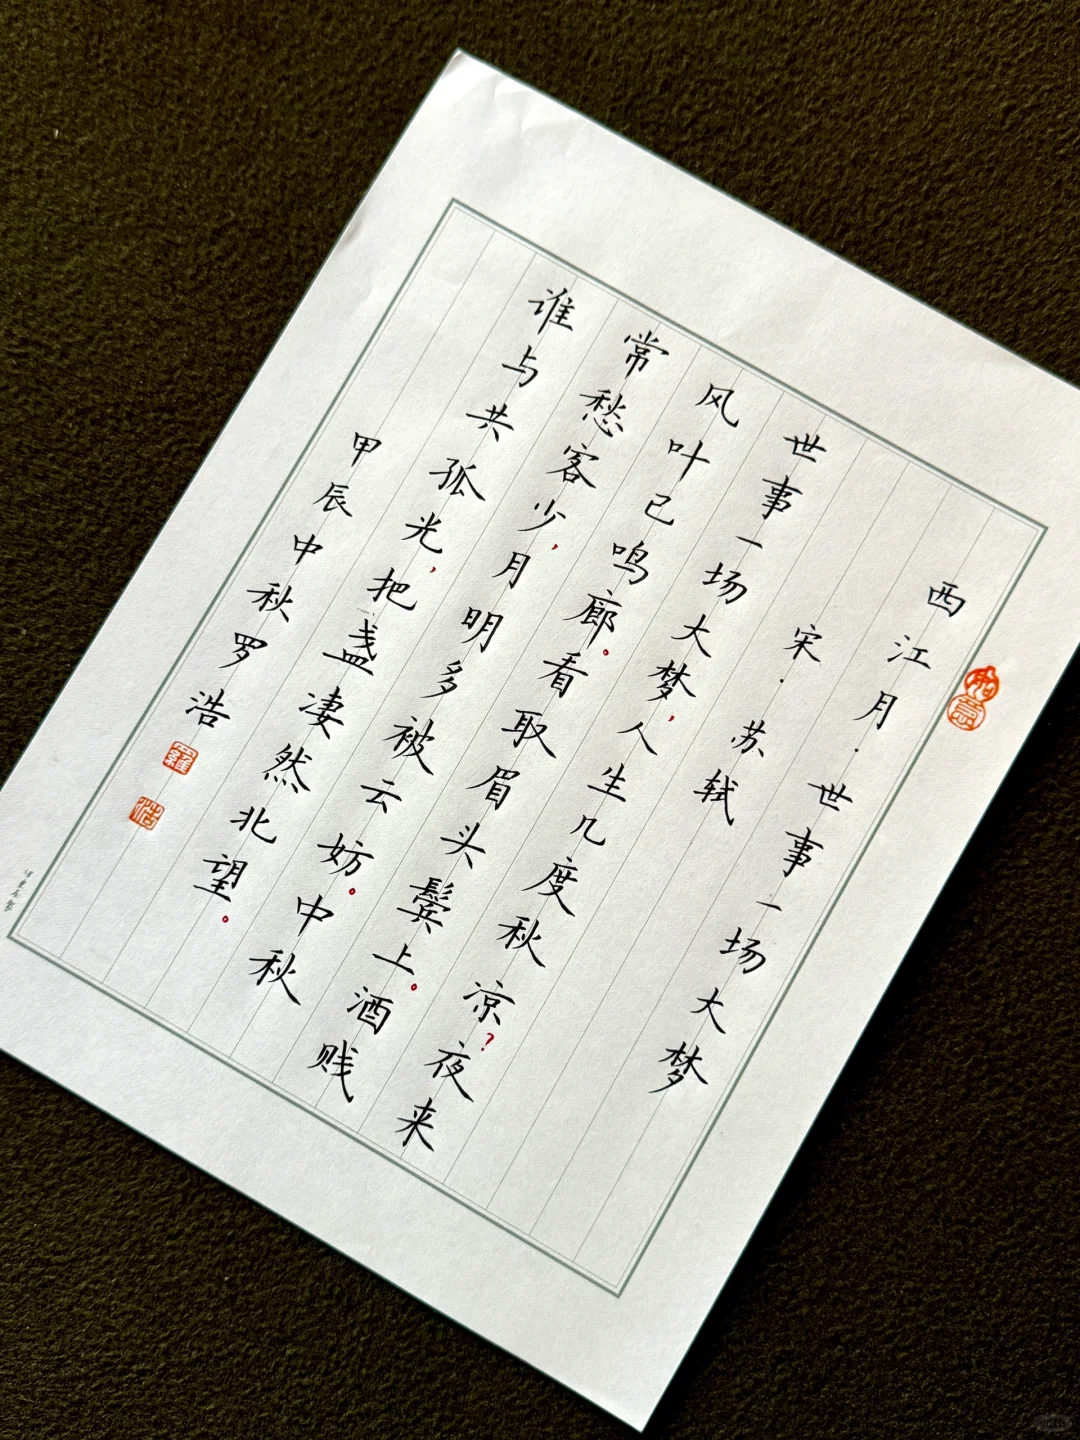 西江月·世事一场大梦
宋·苏轼
世事一场大梦，人生几度秋凉？夜来
风叶已鸣廊。看取眉头鬓上。酒贱
常愁客少，月明多被云妨。中秋
谁与共孤光，把盏凄然北望。
甲辰中秋罗浩
如意
羅
浩